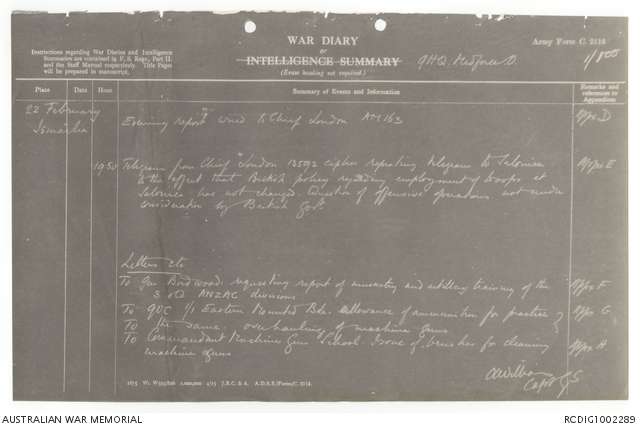 WAR DIARY
or
INTELLIGENCE SUMMARY
(Erase heading not required.)
Army Form C. 2118
Instructions regarding War Diaries and Intelligence
Summaries are contained in F. S. Regs., Part II.
and the Staff Manual respectively. Title Pages
will be prepared in manuscript.
GHQ Medforce
Place Date Hour Summary of Events and Information Remarks and references to Appendices
22 February
Ismailia
Evening report wired to Chief London AM163 Appx D
1950 Telegram from Chief London 13592 cipher repeating telegram to Salonica Appx E
to the effect that British policy regarding employment of troops at
Salonica has not changed. Question of offensive operations not under
consideration by British Govt
Letters etc
To Gen Birdwood: requesting report of musketry and artillery training of the Appx F
3 ANZAC divisions
To GOC 1/1 Eastern Mounted Bde. allowance of ammunition for practice Appx G
To the same: overhauling of machine guns
To Commandant Machine Gun School. Issue of brushes for cleaning Appx H
machine guns
Capt GS
AUSTRALIAN WAR MEMORIAL
RCDIG1002289